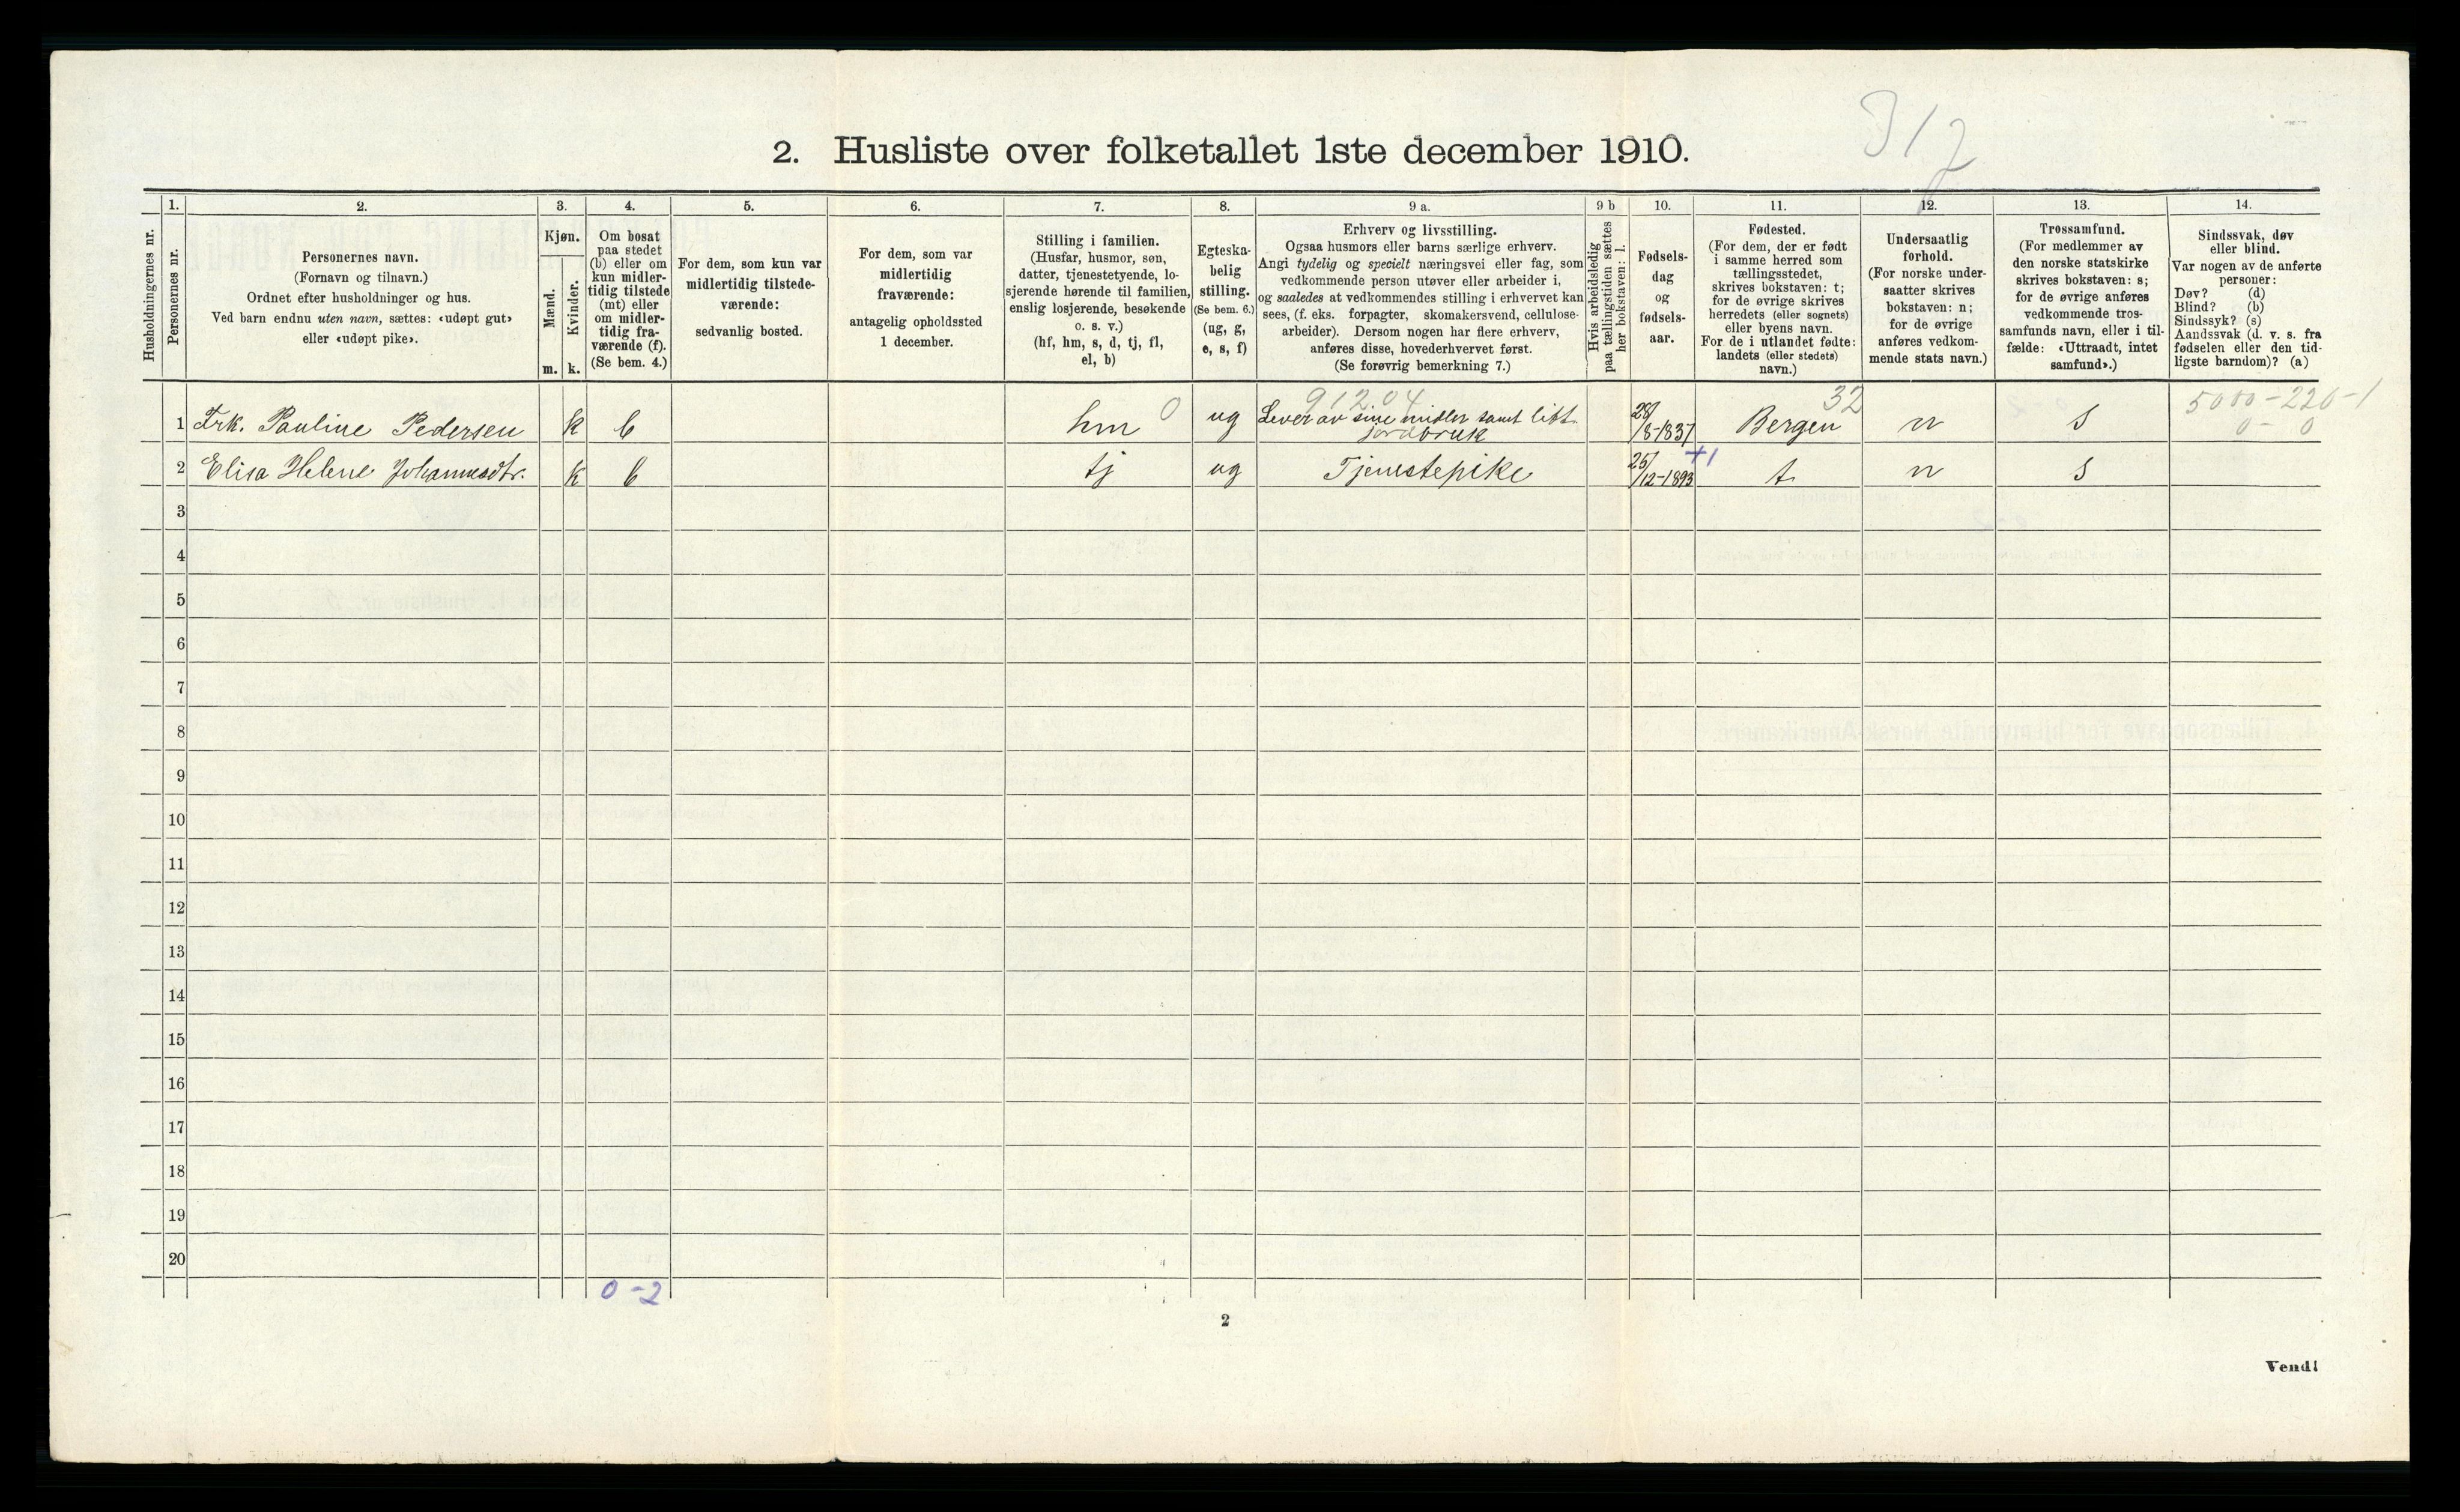 317
2. Husliste over folketallet 1ste december 1910.
Husholdningernes nr.
1.
Personernes nr.
2.
Personernes navn.
(Fornavn og tilnavn.)
Ordnet efter husholdninger og hus.
Ved barn endnu uten navn, sættes: «udøpt gut»
eller «udøpt pike».
3.
Kjøn.
Mænd.
Kvinder.
m. k.
4.
Om bosat
paa stedet
(b) eller om
kun midler-
tidig tilstede
(mt) eller
om midler-
tidig fra-
værende (f).
(Se bem. 4.)
5.
For dem, som kun var
midlertidig tilstede-
værende:
sedvanlig bosted.
6.
For dem, som var
midlertidig
fraværende:
antagelig opholdssted
1 december.
7.
Stilling i familien.
(Husfar, husmor, søn,
datter, tjenestetyende, lo-
sjerende hørende til familien,
enslig losjerende, besøkende
o. s. v.)
(hf, hm, s, d, tj, fl,
el, b)
8.
Egteska-
belig
stilling.
(Se bem. 6.)
(ug, g,
e, s, f)
9 a.
Erhverv og livsstilling.
Ogsaa husmors eller barns særlige erhverv.
Angi tydelig og specielt næringsvei eller fag, som
vedkommende person utøver eller arbeider i,
og saaledes at vedkommendes stilling i erhvervet kan
sees, (f. eks. forpagter, skomakersvend, cellulose-
arbeider). Dersom nogen har flere erhverv,
anføres disse, hovederhvervet først.
(Se forøvrig bemerkning 7.)
9 b
Hvis arbeidsledig
paa tællingstiden sættes
her bokstaven: l.
10.
Fødsels-
dag
og
fødsels-
aar.
11.
Fødested.
(For dem, der er født
i samme herred som
tællingsstedet,
skrives bokstaven: t;
for de øvrige skrives
herredets (eller sognets)
eller byens navn.
For de i utlandet fødte:
landets (eller stedets)
navn.)
12.
Undersaatlig
forhold.
(For norske under-
saatter skrives
bokstaven: n;
for de øvrige
anføres vedkom-
mende stats navn.)
13.
Trossamfund.
(For medlemmer av
den norske statskirke
skrives bokstaven: s;
for de øvrige anføres
vedkommende tros-
samfunds navn, eller i til-
fælde: «Uttraadt, intet
samfund».)
14.
Sindssvak, døv
eller blind.
Var nogen av de anførte
personer:
Døv? (d)
Blind? (b)
Sindssyk? (s)
Aandssvak (d. v. s. fra
fødselen eller den tid-
ligste barndom)? (a)
912.04 32 5000-220-1
1 Frk. Pauline Pedersen k b hm 0 ug Lever av sine midler samt litt 28/8-1837 Bergen n s 0-0
jordbruk
+1
2 Elisa Helene Johannesdtr. k b tj ug Tjenestepike 25/12-1893 t. n s
3
4
5
6
7
8
9
10
11
12
13
14
15
16
17
18
19
20
0-2
2
Vend!